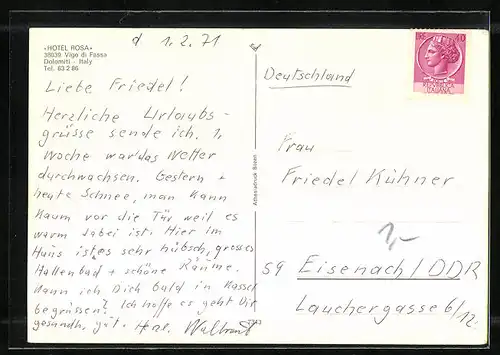 «HOTEL ROSA»
38039 Vigo di Fassa
Dolomiti - Italy
Tel. 63 2 86
d 1.2.71
Liebe Friedel!
Herzliche Urlaubs-
grüsse sende ich. 1.
Woche war das Wetter
durchwachsen. Gestern +
heute Schnee, man kann
kaum vor die Tür weil es
warm dabei ist. Hier im
Haus ist es sehr hübsch, grosses
Hallenbad + schöne Räume.
Kann ich Dich bald in Kassel
begrüssen? Ich hoffe es geht Dir
gesundh. gut. Herzl.
Deutschland
Frau
Friedel Kühner
1,-
59 Eisenach/DDR
Lauchergasse 6/12.